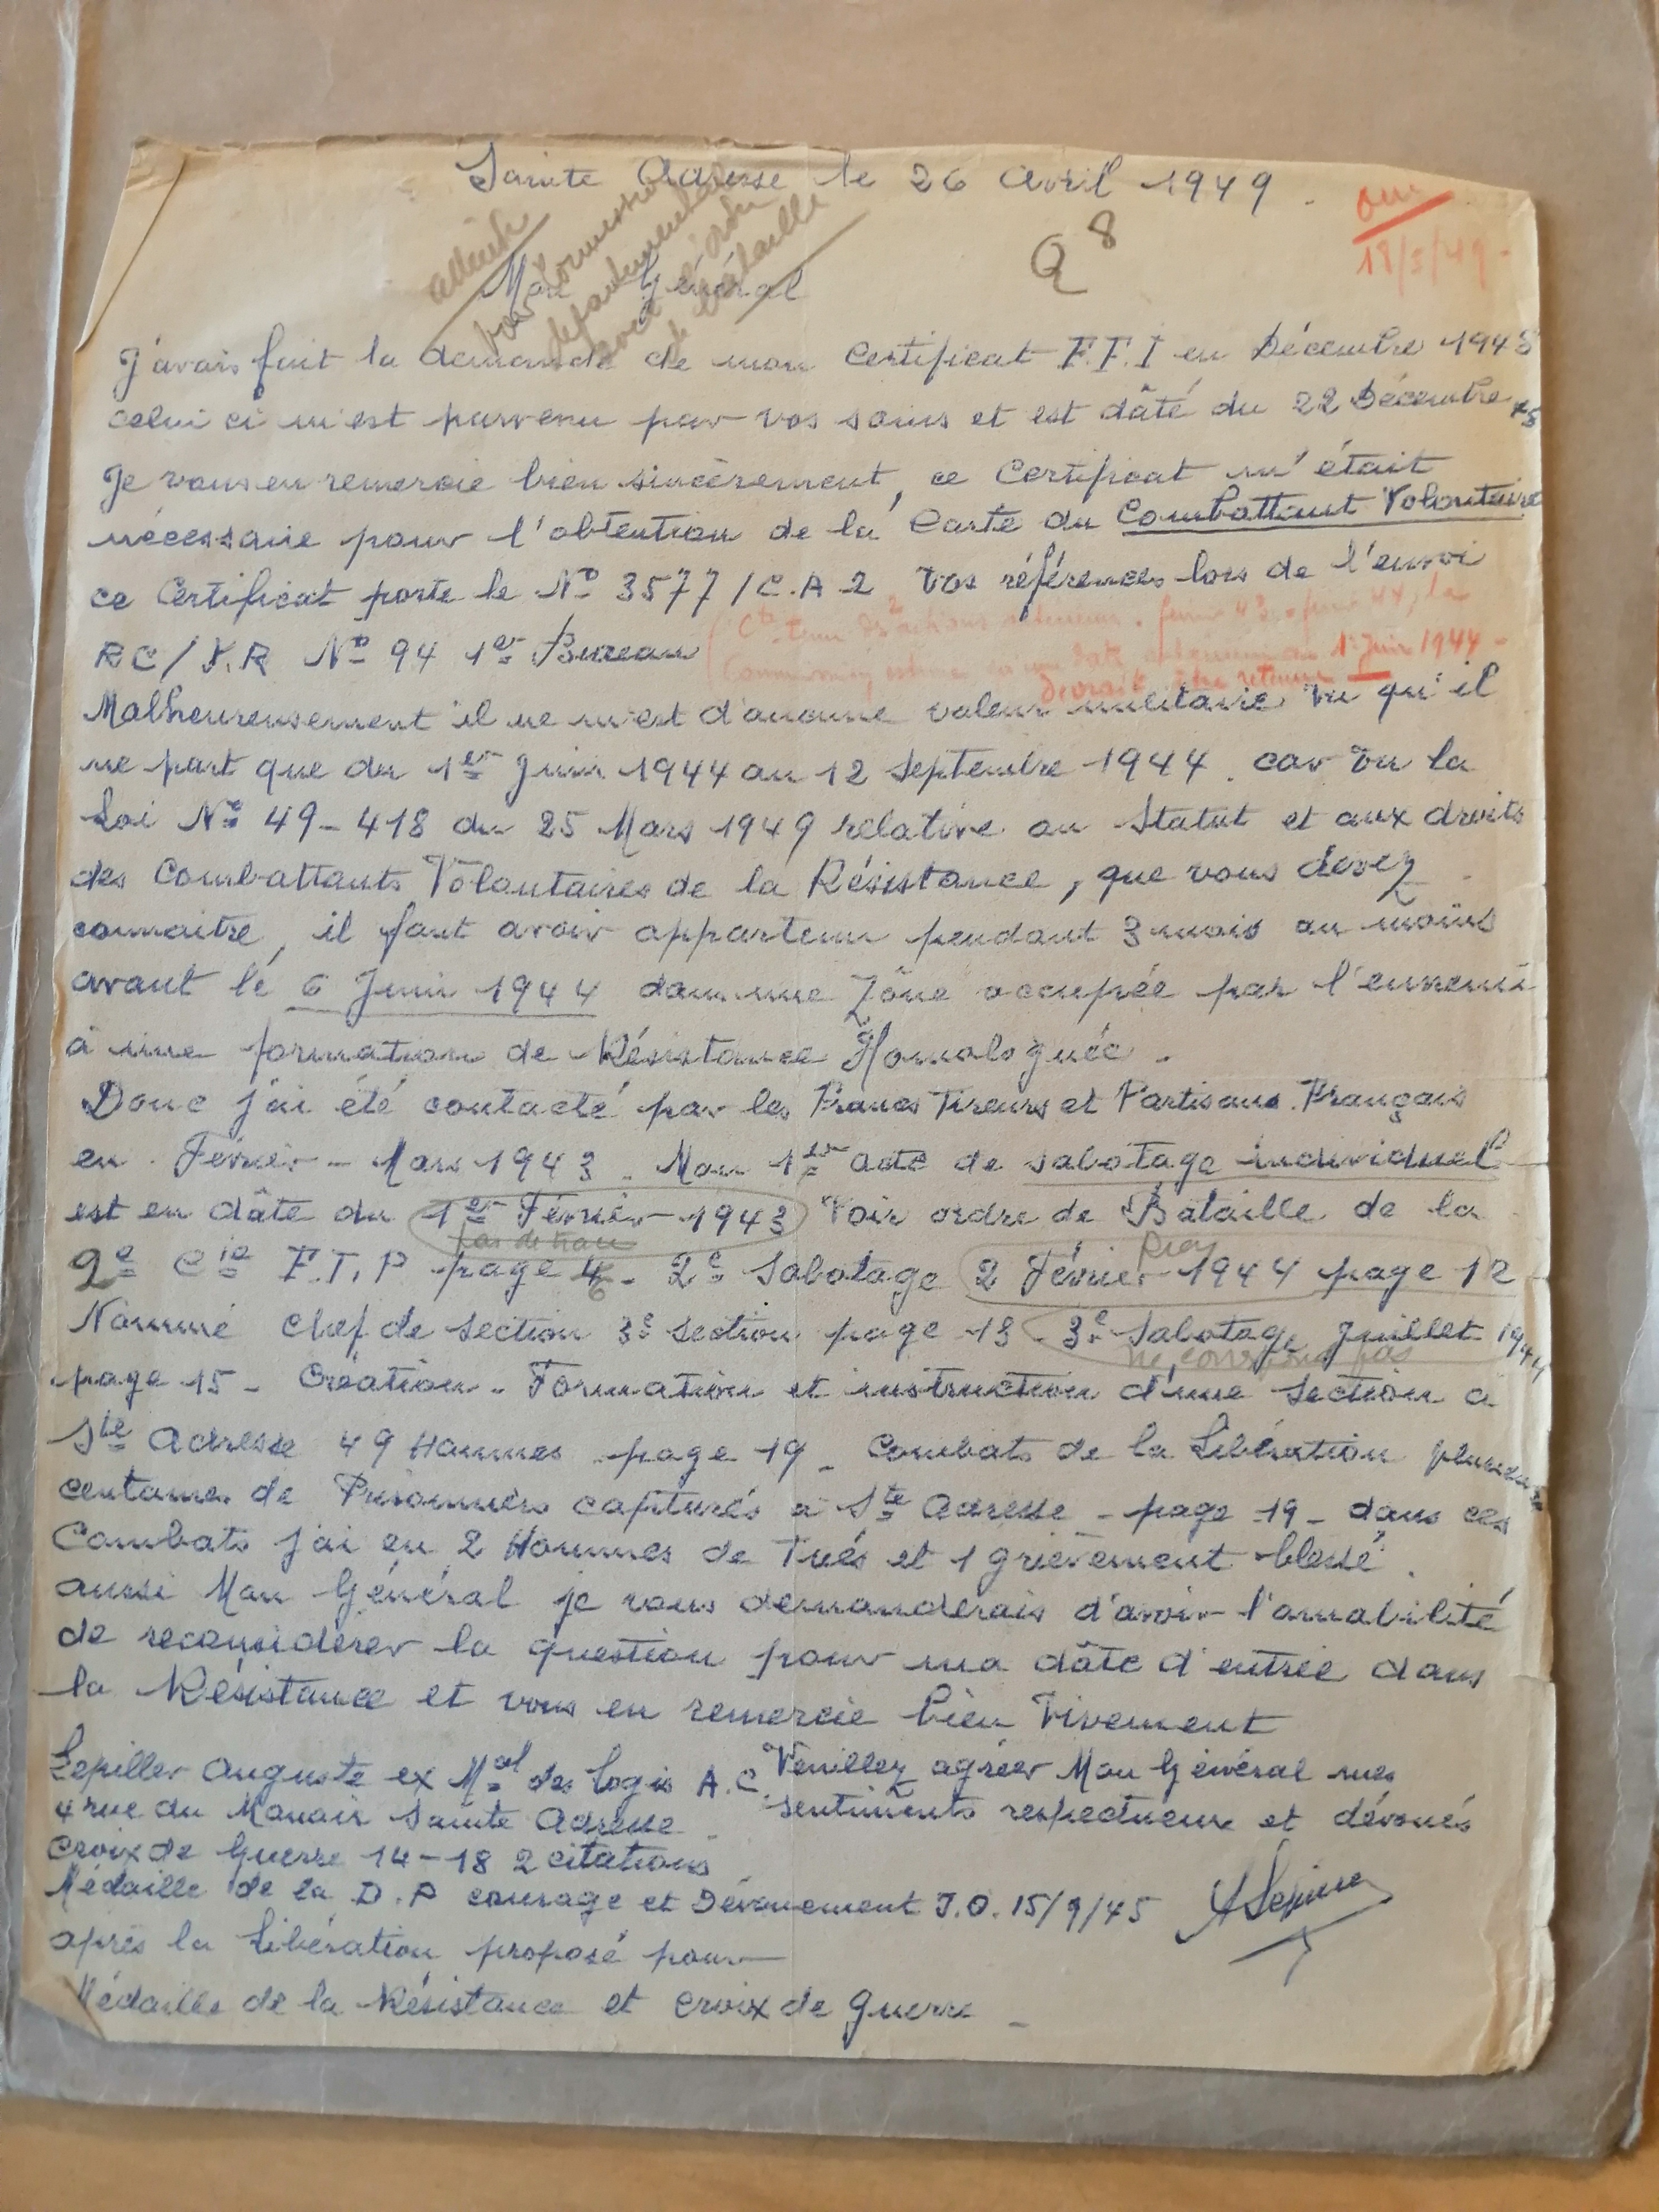 Sainte Adresse le 26 Avril 1949.
Q 8
oui
18/5/49
Mon Général
J'avais fait la demande de mon Certificat F.F.I en Décembre 1948
celui ci m'est parvenu par vos soins et est dâté du 22 Décembre
Je vous en remercie bien sincèrement, ce Certificat m'était
nécessaire pour l'obtention de la Carte du Combattant Volontaire
ce Certificat porte le No 3577/C.A 2 Vos références lors de l'envoi
RC/Y.R No 94 1er Bureau
1er Juin 1944
devrait être retenue
Malheureusement il ne m'est d'aucune valeur militaire vu qu'il
ne part que du 1er Juin 1944 au 12 Septembre 1944. car vu la
Loi No 49-418 du 25 Mars 1949 relative au Statut et aux droits
des Combattants Volontaires de la Résistance, que vous devez
connaitre, il faut avoir appartenu pendant 3 mois au moins
avant le 6 Juin 1944 dans une Zône occupée par l'ennemi
à une formation de Résistance Homologuée.
Donc j'ai été contacté par les Francs Tireurs et Partisans Français
en Février - Mars 1943. Mon 1er acte de sabotage individuel
est en dâte du 1er Février 1943 Voir ordre de Bataille de la
pas de trace
2e Cie F.T.P page 6 - 2e Sabotage 2 Février 1944 page 12
Nommé chef de section 3e section page 13 - 3e Sabotage Juillet 1944
page 15 - Création - Formation et instruction d'une Section a
Ste Adresse 49 Hommes page 19 - Combats de la Libération plusieurs
centaines de Prisonniers capturés a Ste Adresse - page 19 - dans ces
Combats j'ai eu 2 Hommes de Tués et 1 grievement blessé.
aussi Mon Général je vous demanderais d'avoir l'amabilité
de reconsidérer la question pour ma dâte d'entrée dans
la Résistance et vous en remercie bien Vivement
Veuillez agréer Mon Général mes
sentiments respectueux et dévoués
Lepiller Auguste ex Mal des Logis A.C.
4 rue du Manoir Sainte Adresse
Croix de Guerre 14-18 2 citations
Médaille de la D.P courage et Dévouement J.O. 15/9/45
après la Libération proposé pour
Médaille de la Résistance et croix de guerre